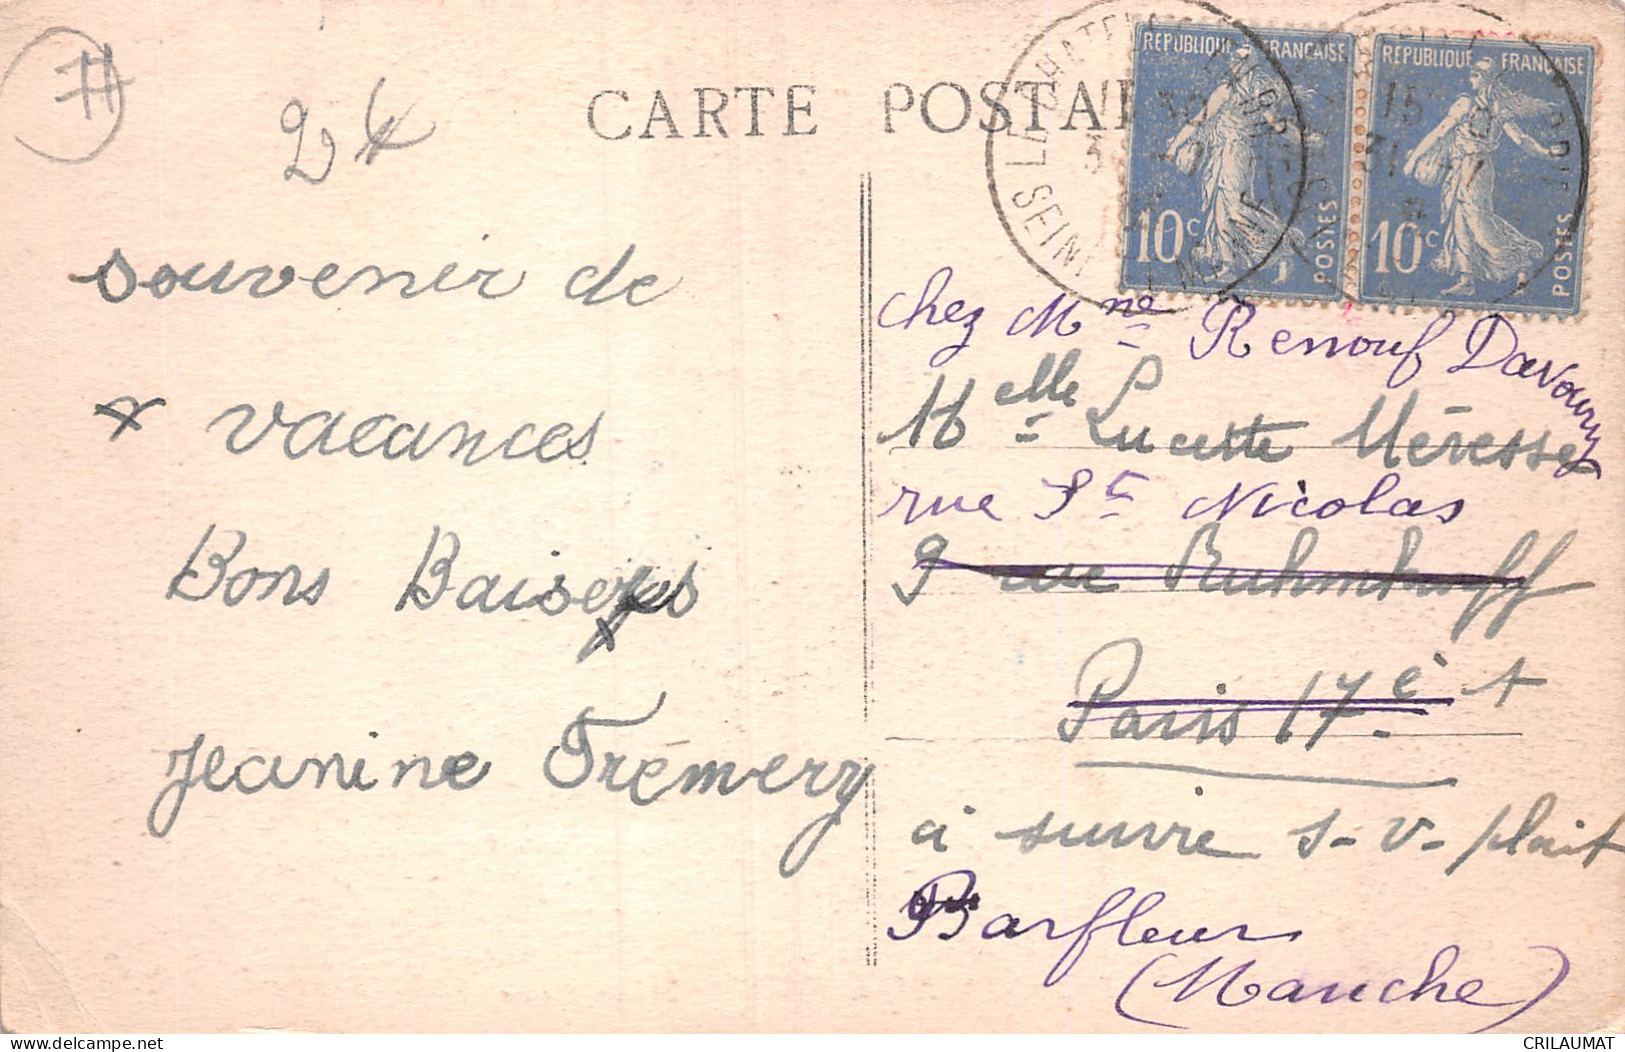 77
CARTE POSTAL
REPUBLIQUE FRANÇAISE
10c
POSTES
REPUBLIQUE FRANÇAISE
10c
POSTES
LE CHATELET EN BRIE
SEINE ET MARNE
souvenir de
vacances
Bons Baisers
Jeanine Trémery
chez Mme Renouf Davoury
Melle Lucette Méresse
rue St Nicolas
9 rue Ruhmkorff
Paris 17è
à suivre s-v-plait
Barfleur
(Manche)
delcampe.net
CRILAUMAT